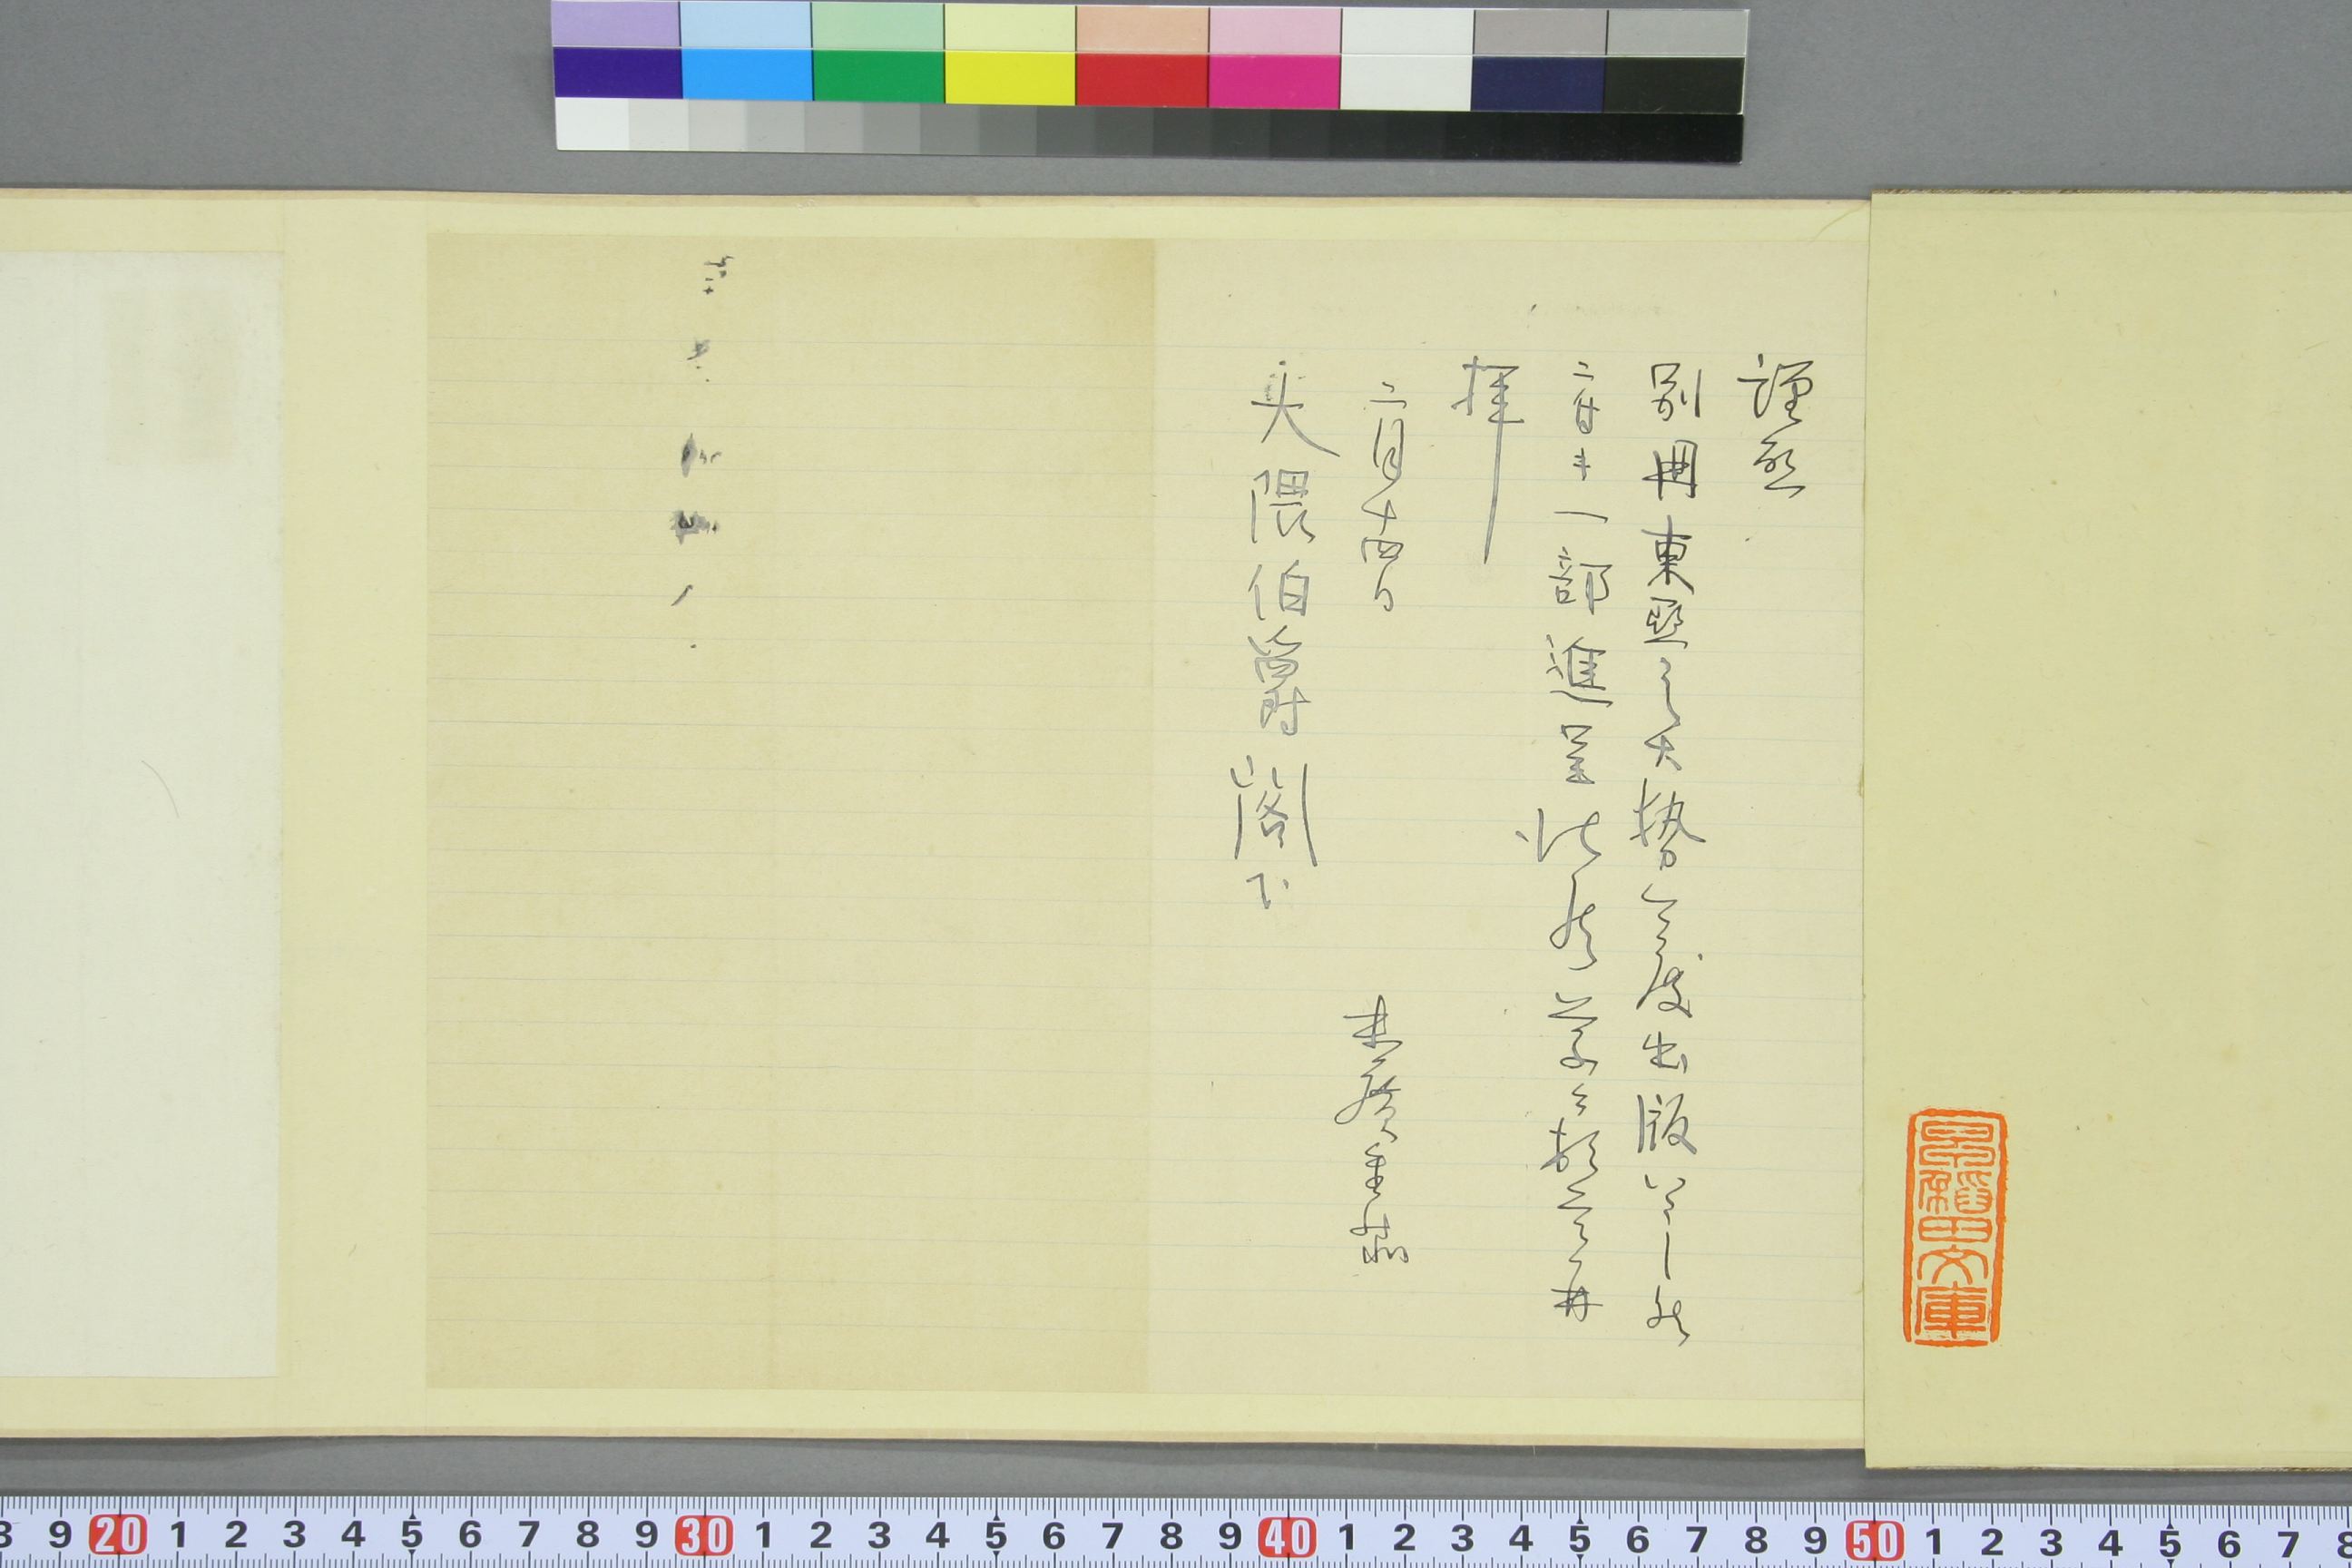 謹啓
別冊東亞之大勢今度出版いたし候
ニ付キ一部進呈仕候草々頓首再
拝
二月十四日
末廣重恭
大隈伯爵閣下
早稻田文庫
8 9 20 1 2 3 4 5 6 7 8 9 30 1 2 3 4 5 6 7 8 9 40 1 2 3 4 5 6 7 8 9 50 1 2 3 4 5 6 7 8